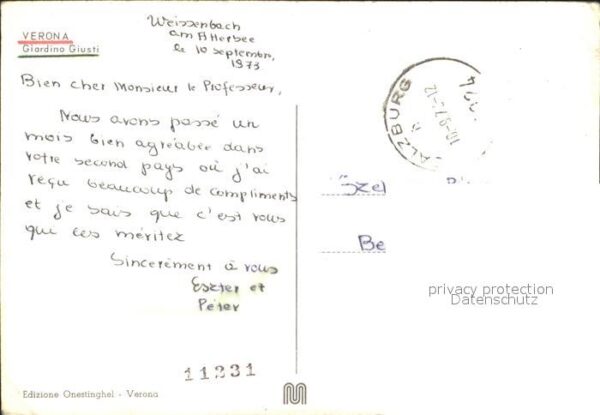 VERONA
Giardino Giusti
Weissenbach
am Attersee
le 10 septembre,
1973
Bien cher Monsieur le Professeur,
Nous avons passé un
mois bien agréable dans
votre second pays où j'ai
reçu beaucoup de compliments
et je sais que c'est vous
qui les méritez
Sincerément à vous
Eszter et
Péter
SALZBURG
Szel
Be
privacy protection
Datenschutz
11231
Edizione Onestinghel - Verona